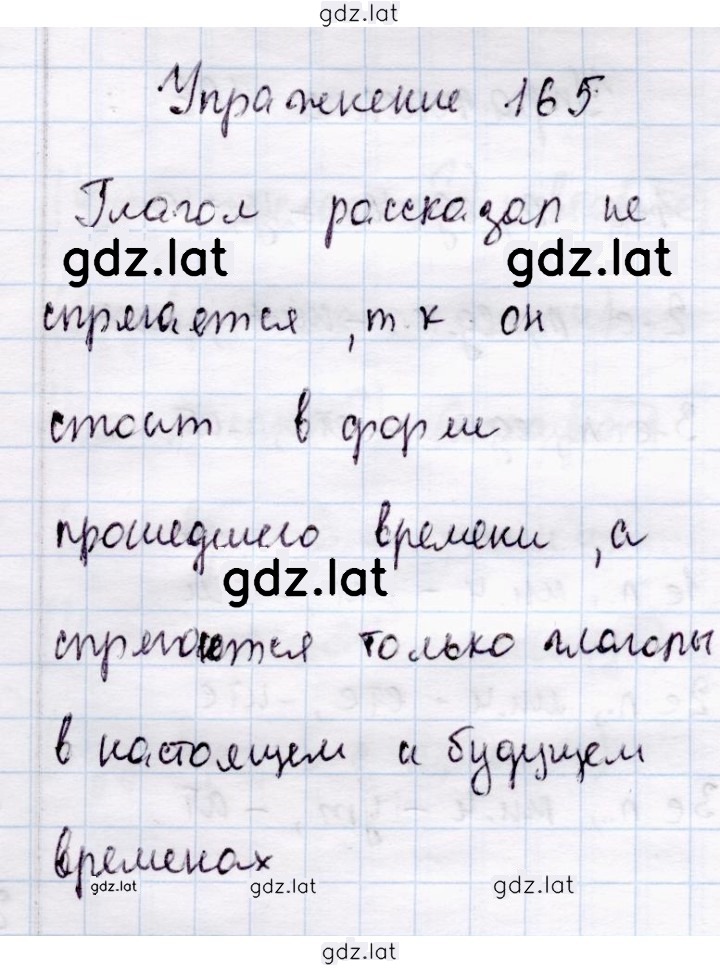 gdz.lat
Упражнение 165
Глагол рассказал не
gdz.lat gdz.lat
спрягается, т к он
стоит в форме
прошедшего времени, а
gdz.lat
спрягаются только глаголы
в настоящем и будущем
временах
gdz.lat gdz.lat gdz.lat
gdz.lat